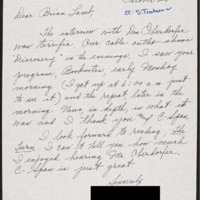 cc: S. Trahern
Dear Brian Lamb,
The interview with Don Oberdorfer
was terrific. Our cable outlet shows
"Discovery" in the evenings. I saw your
program, Booknotes, early Monday
morning (I get up at 6:00 a.m. just
to see it) and the repeat later in the
morning. News, in depth, is what it
was and I thank you & C-Span
I look forward to reading, The
Turn. I can't tell you how much
I enjoyed hearing Mr. Oberdorfer.
C-Span is just great.
Sincerely